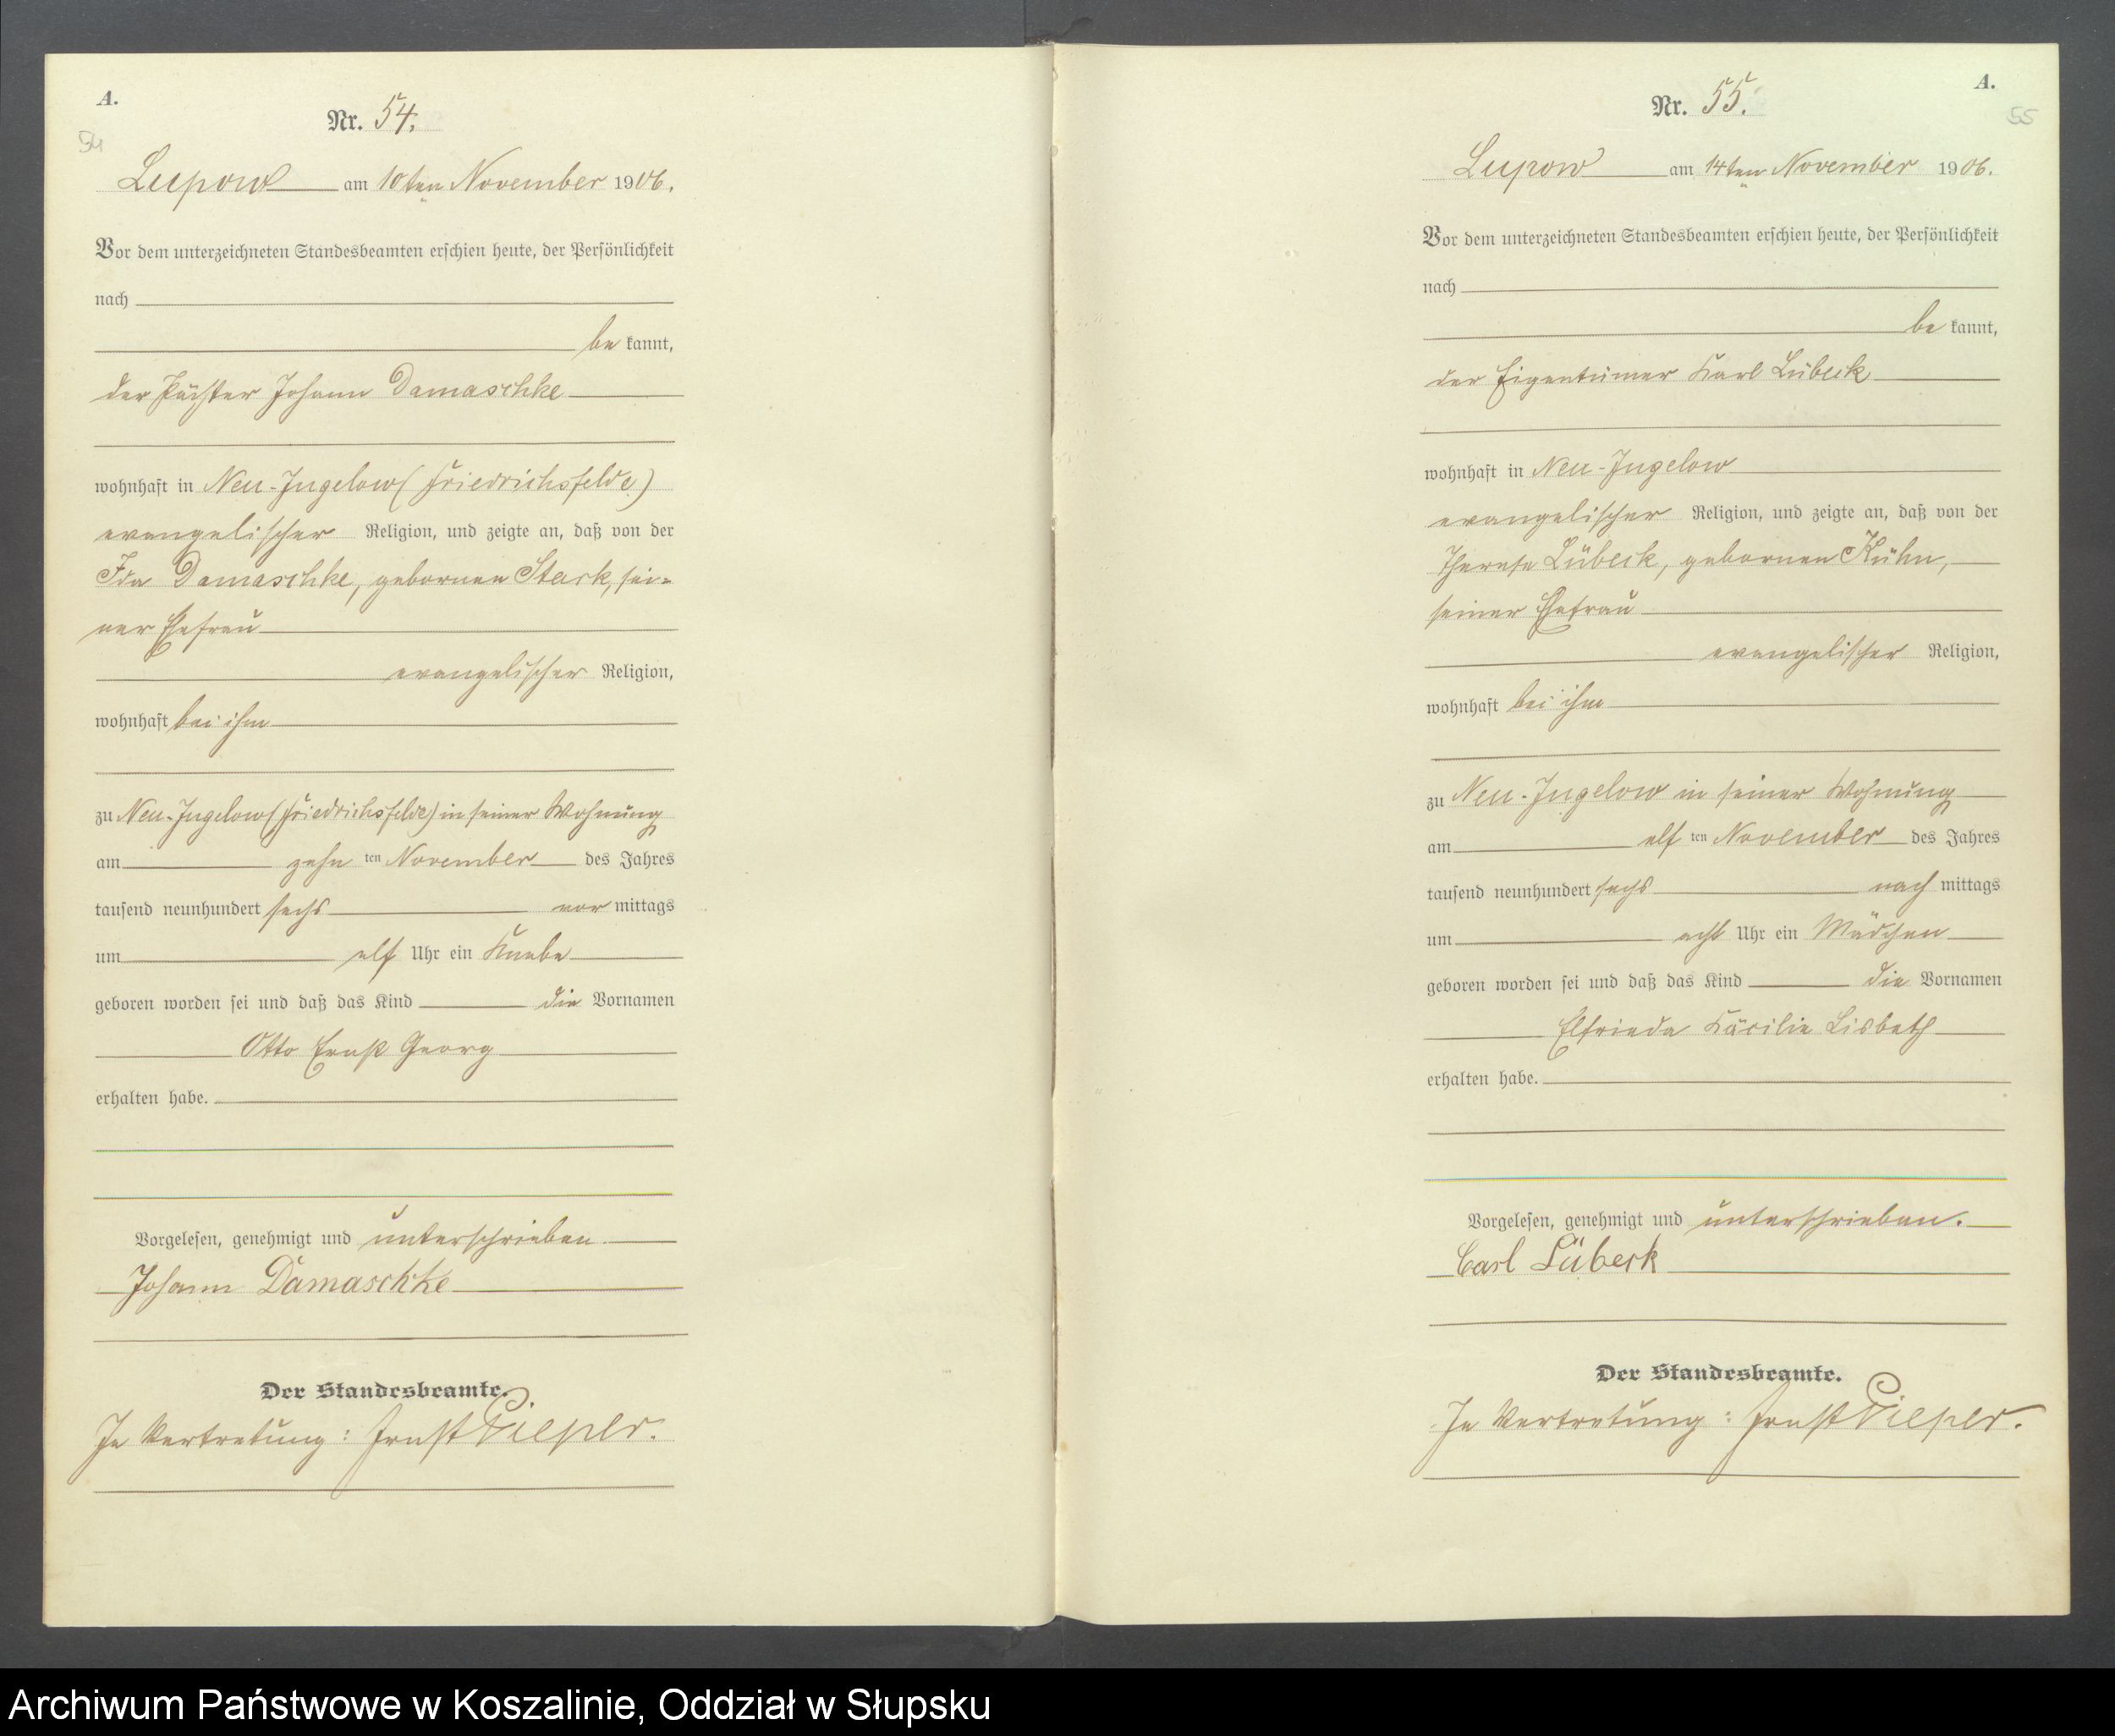 A.
Nr. 54.
54
Lupow am 10ten November 1906.
Vor dem unterzeichneten Standesbeamten erschien heute, der Persönlichkeit
nach
be kannt,
der Pächter Johann Damaschke
wohnhaft in Neu-Jugelow (Friedrichsfelde)
evangelischer Religion, und zeigte an, daß von der
Ida Damaschke, gebornen Stark, sei-
ner Ehefrau
evangelischer Religion,
wohnhaft bei ihm
zu Neu-Jugelow (Friedrichsfelde) in seiner Wohnung
am zehn ten November des Jahres
tausend neunhundert sechs vor mittags
um elf Uhr ein Knabe
geboren worden sei und daß das Kind die Vornamen
Otto Ernst Georg
erhalten habe.
Vorgelesen, genehmigt und unterschrieben.
Johann Damaschke
Der Standesbeamte.
In Vertretung: Ernst Pieper.
A.
Nr. 55.
55
Lupow am 14ten November 1906.
Vor dem unterzeichneten Standesbeamten erschien heute, der Persönlichkeit
nach
be kannt,
der Eigentümer Karl Lübeck
wohnhaft in Neu-Jugelow
evangelischer Religion, und zeigte an, daß von der
Therese Lübeck, gebornen Kühn,
seiner Ehefrau
evangelischer Religion,
wohnhaft bei ihm
zu Neu-Jugelow in seiner Wohnung
am elf ten November des Jahres
tausend neunhundert sechs nach mittags
um acht Uhr ein Mädchen
geboren worden sei und daß das Kind die Vornamen
Elfrieda Käcilie Lisbeth
erhalten habe.
Vorgelesen, genehmigt und unterschrieben.
Carl Lübeck
Der Standesbeamte.
In Vertretung: Ernst Pieper.
Archiwum Państwowe w Koszalinie, Oddział w Słupsku